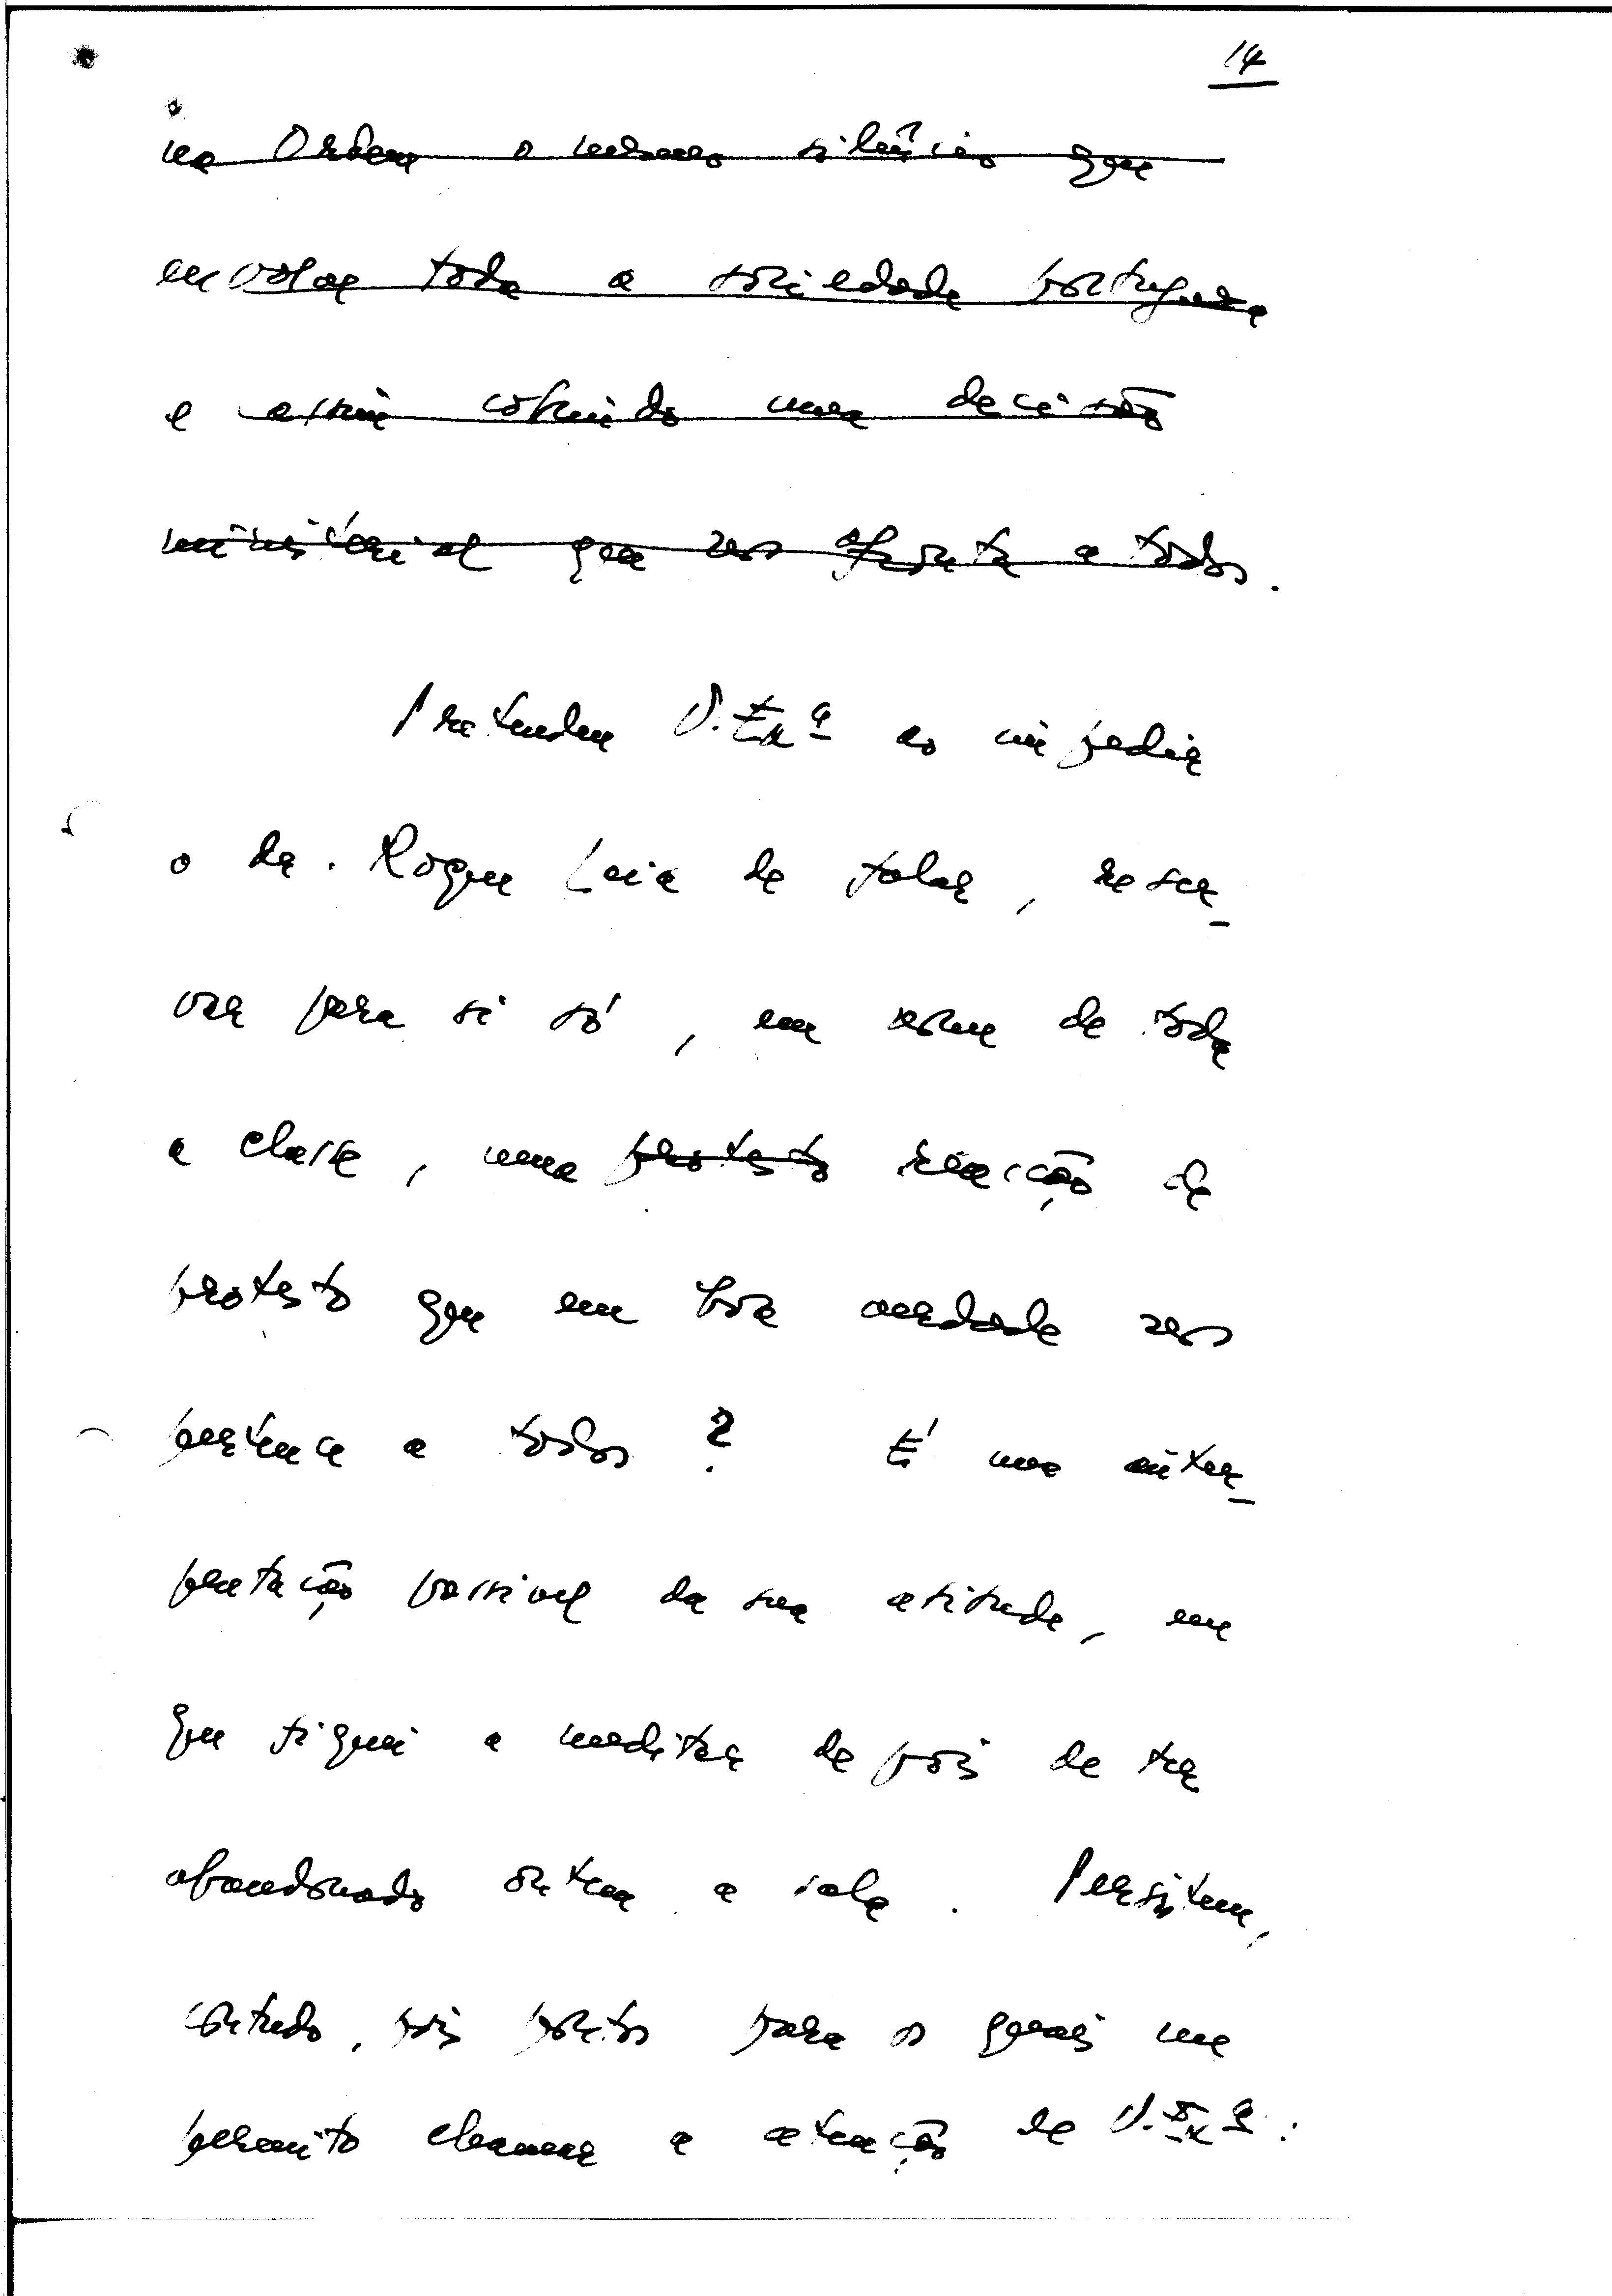 14
na Ordem o mesmo silêncio que
envolve toda a sociedade portuguesa
e assim cobrindo uma decisão
ministerial que nos afronta a todos.
Pretendeu V. Exª ao impedir
o dr. Roque Laia de falar, reser-
var para si só, em nome de toda
a classe, uma protesto reacção de
protesto que em boa verdade nos
pertence a todos? É uma inter-
pretação possivel da sua atitude, em
que fiquei a meditar depois de ter
abandonado ontem a sala. Persistem,
contudo, dois pontos para os quais me
permito chamar a atenção de V. Exª: